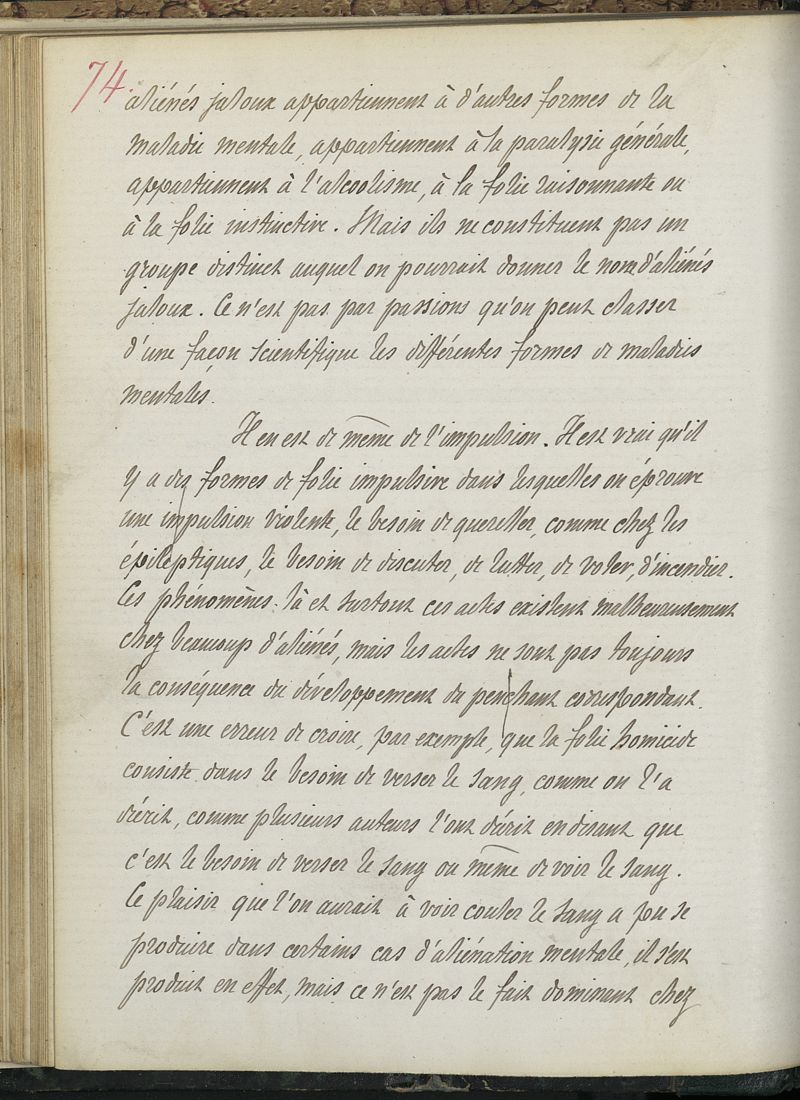 74.
aliénés jaloux appartiennent à d'autres formes de la
maladie mentale, appartiennent à la paralysie générale,
appartiennent à l'alcoolisme, à la folie raisonnante ou
à la folie instinctive. Mais ils ne constituent pas un
groupe distinct auquel on pourrait donner le nom d'aliénés
jaloux. Ce n'est pas par passions qu'on peut classer
d'une façon scientifique les différentes formes de maladies
mentales.
Il en est de même de l'impulsion. Il est vrai qu'il
y a des formes de folie impulsive dans lesquelles on éprouve
une impulsion violente, le besoin de quereller, comme chez les
épileptiques, le besoin de discuter, de lutter, de voler, d'incendier.
Ces phénomènes-là et surtout ces actes existent malheureusement
chez beaucoup d'aliénés, mais les actes ne sont pas toujours
la conséquence du développement du penchant correspondant.
C'est une erreur de croire, par exemple, que la folie homicide
consiste dans le besoin de verser le sang, comme on l'a
décrit, comme plusieurs auteurs l'ont décrit en disant que
c'est le besoin de verser le sang ou même de voir le sang.
Ce plaisir que l'on aurait à voir couler le sang a pu se
produire dans certains cas d'aliénation mentale, il s'est
produit en effet, mais ce n'est pas le fait dominant chez